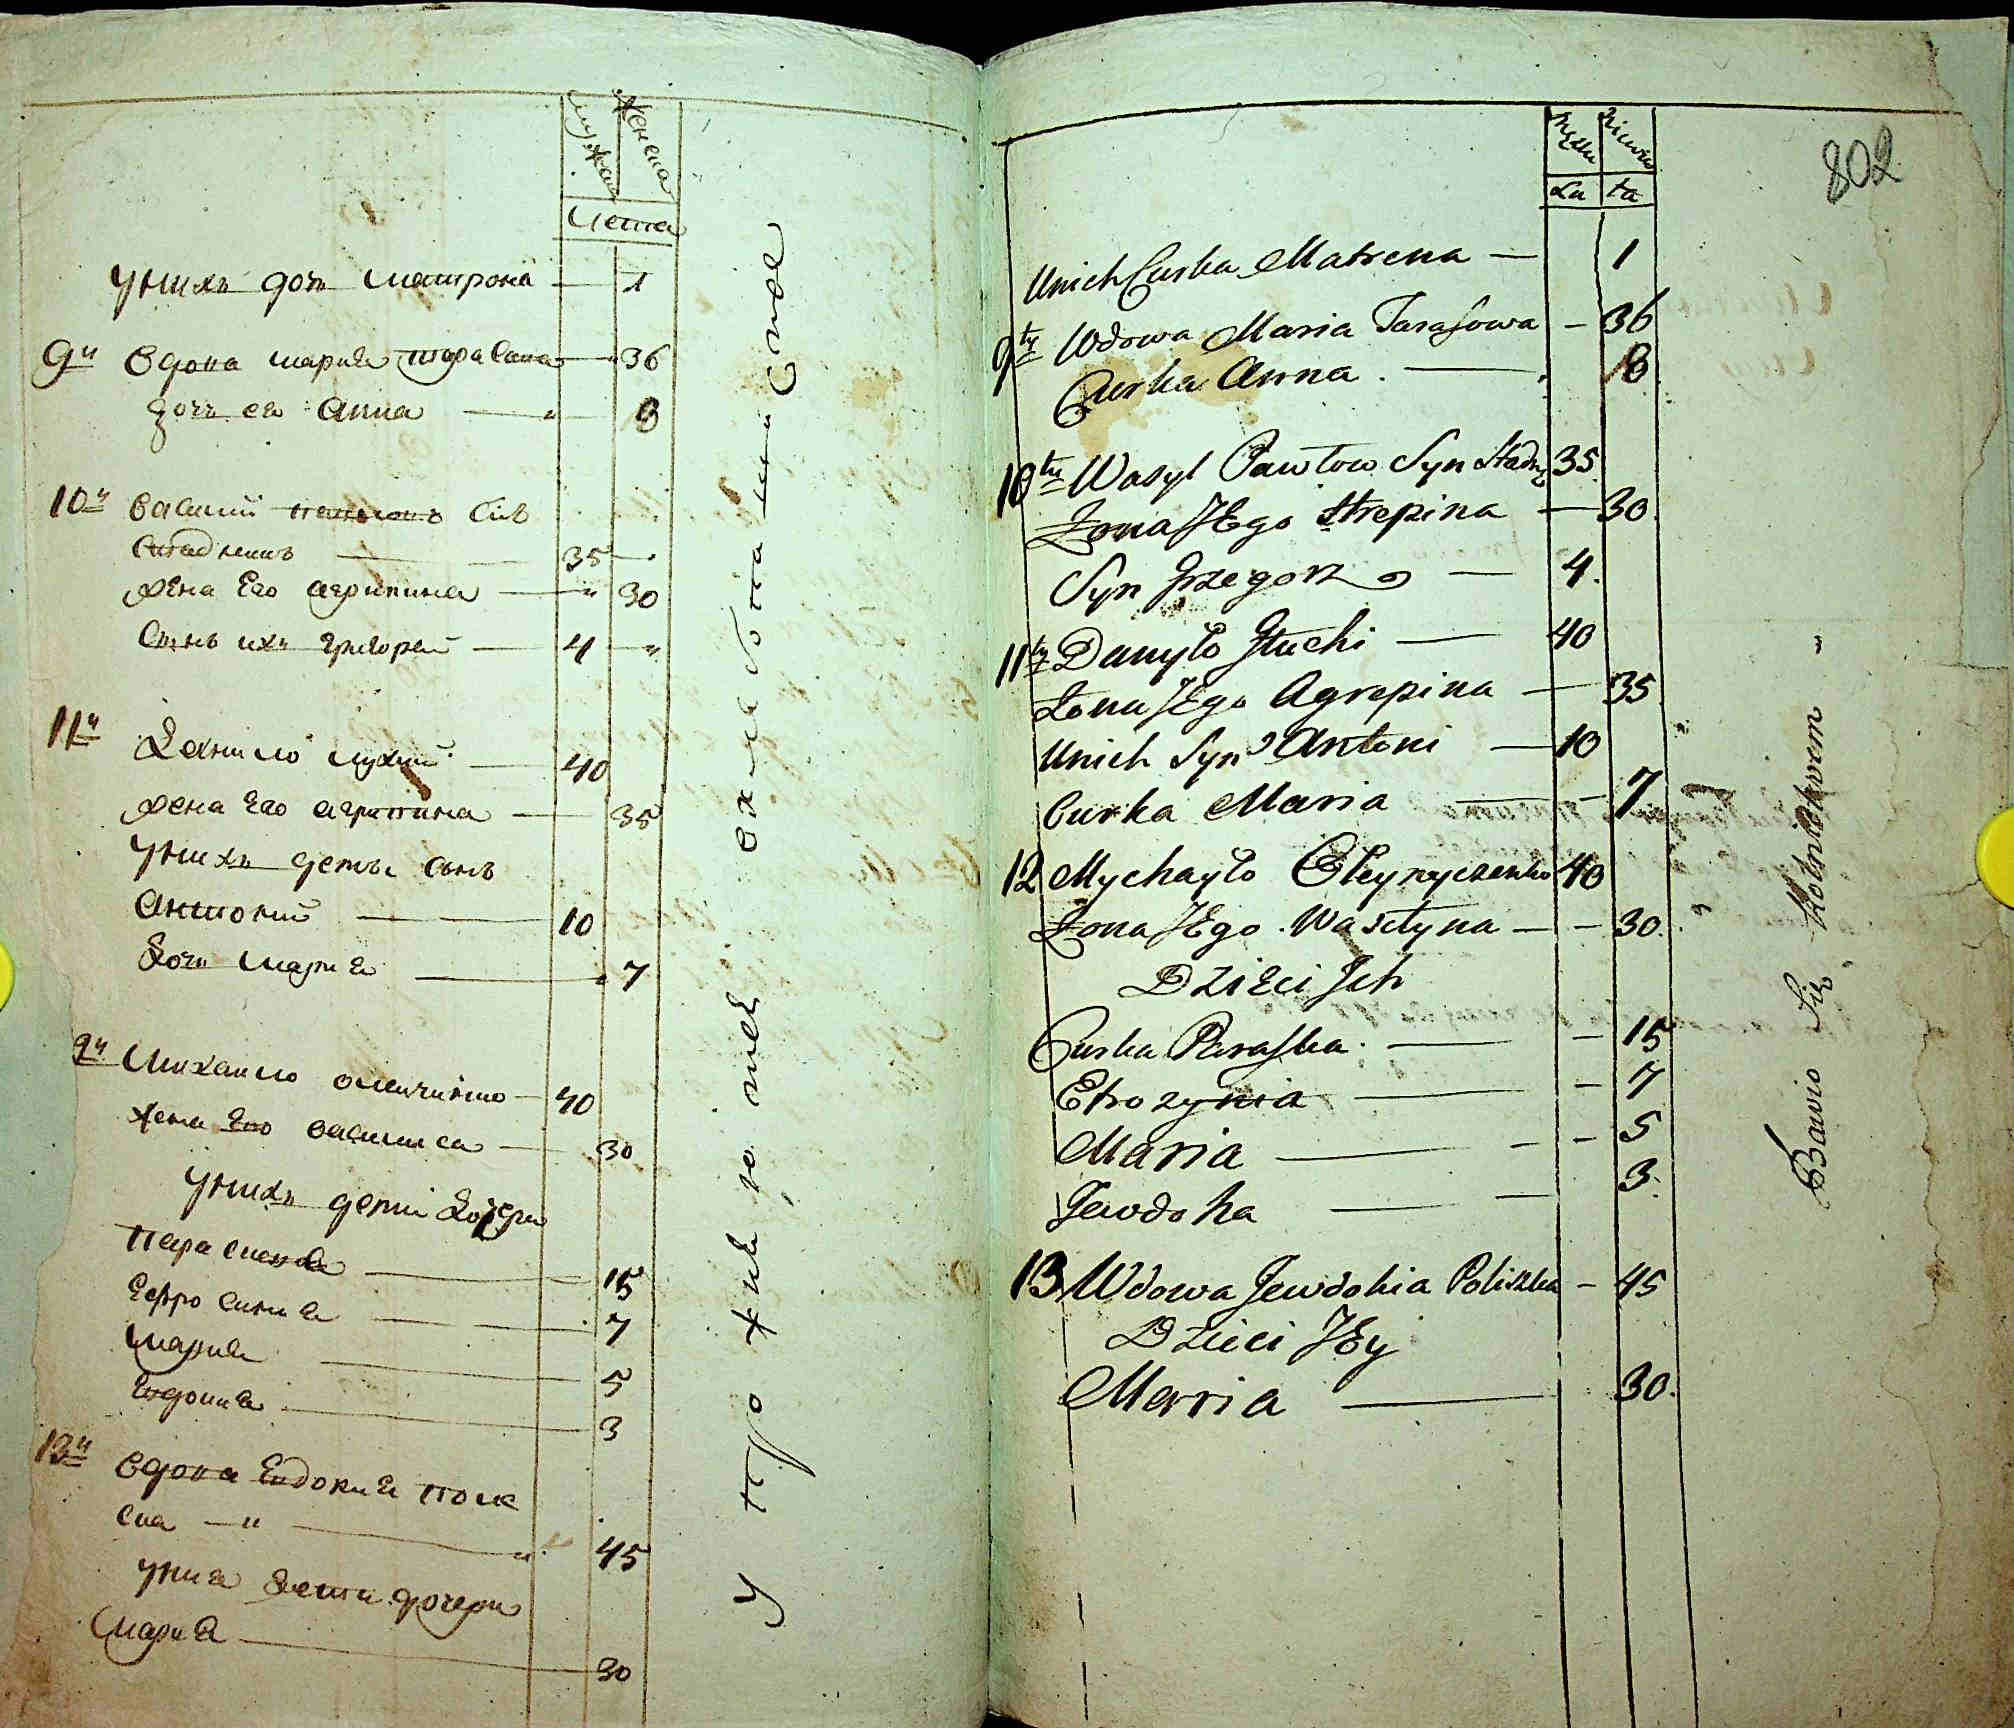 мужеска
женска
Лета
у них дочь матрона — 1
9й вдова мария тарасова — 36
дочь ея Анна — " 8
10й василий павловъ сынъ
Стадникъ — 35 — "
жена Его агрипина — " 30
Сынъ ихъ григорей — 4 — "
11й Данило глухий — 40
жена Его агрипина — 35
у нихъ дети сынъ
Антоний — 10
Дочь мария — " 7
Михаило олейничинко — 40
жена Его василиса — 30
у нихъ дети Дочери
Парасковия — 15
Ефросиния — 7
мария — 5
Евдокия — 3
13й вдова Евдокия полис
ска — " — " 45
у ния Дети дочери
мария — 30
У пражнюютце охлеботными Стое
802
Męzka
Niewia
La ta
Unich Curka Matrena — 1
9ty Wdowa Maria Tarasowa — 36
Curka Anna. — 8
10ty Wasyl Pawłow Syn Stadny 35
Zona JEgo Strepina — 30.
Syn Grzegorz — 4.
11ty Danyło Głuchi — 40
Zona JEgo Agrepina — 35
Unich Syn Antoni — 10
Curka Maria — 7
12 Mychayło Oleynyczenko 40
Zona JEgo Wasetyna — 30.
Dzieci Jch
Curka Paraska. — 15
Efrozynia — 7
Maria — 5
Jewdoha — 3.
13 Wdowa Jewdohia Poliszka — 45
Dzieci JEy
Marria — 30.
Bawio Się Rolnictwem "